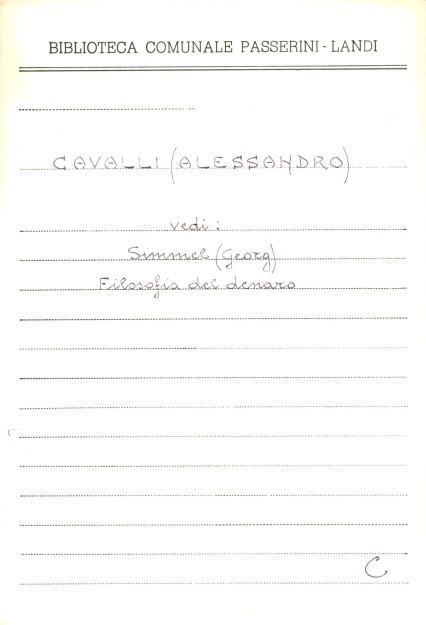 BIBLIOTECA COMUNALE PASSERINI - LANDI
CAVALLI (ALESSANDRO)
vedi :
Simmel (Georg)
Filosofia del denaro
C